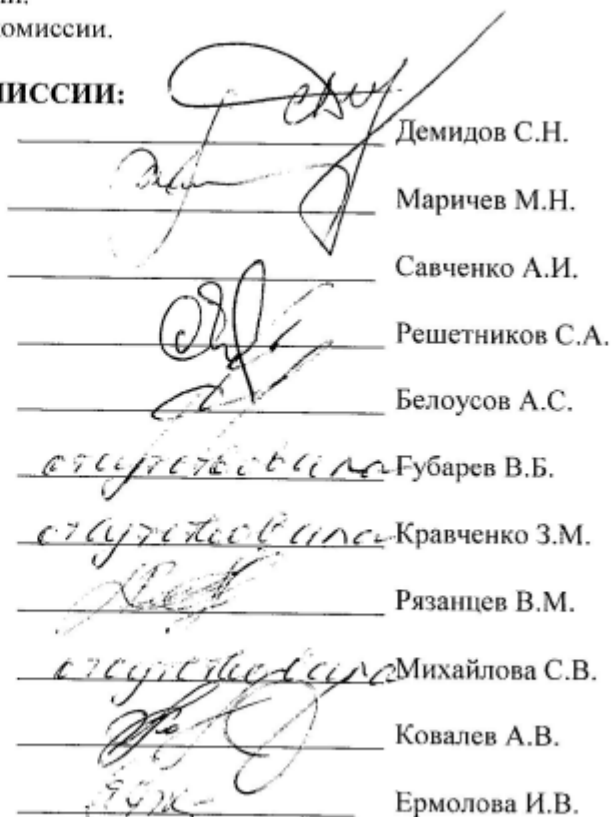 ии.
омиссии.
МИССИИ:
Демидов С.Н.
Маричев М.Н.
Савченко А.И.
Решетников С.А.
Белоусов А.С.
отсутствовала Губарев В.Б.
отсутствовала Кравченко З.М.
Рязанцев В.М.
отсутствовала Михайлова С.В.
Ковалев А.В.
Ермолова И.В.